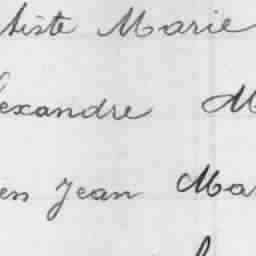 tiste Marie
lexandre M
en Jean Ma